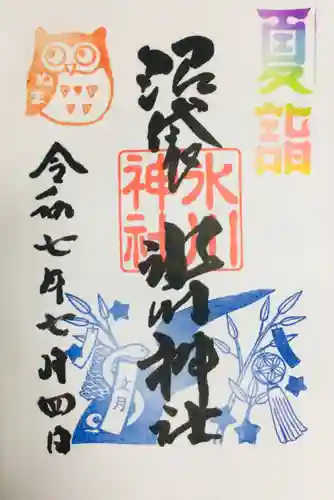 夏詣
沼袋氷川神社
氷川
神社
令和七年七月四日
文月